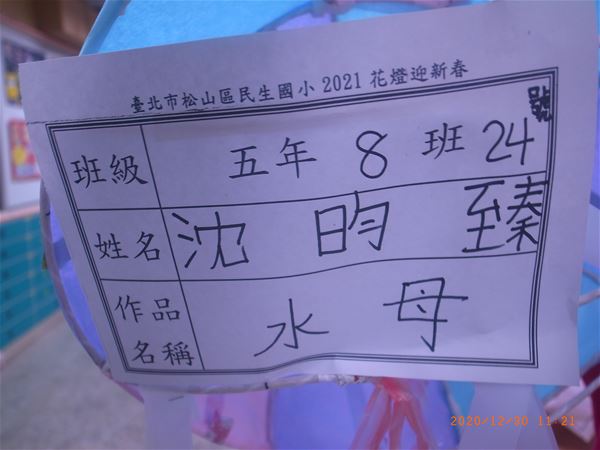 臺北市松山區民生國小 2021 花燈迎新春
班級 五年 8 班 24號
姓名 沈昀臻
作品名稱 水母
2020/12/30 11:21